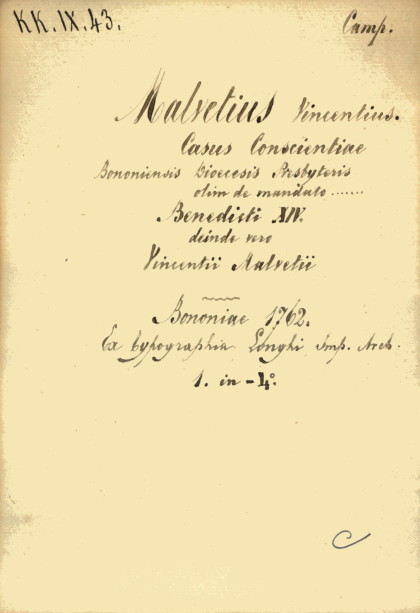 KK. IX. 43.
Camp.
Malvetius Vincentius.
Casus Conscientiae
Bononiensis Dioecesis Presbyteris
olim de mandato .......
Benedicti XIV.
deinde vero
Vincentii Malvetii
Bononiae 1762.
Ex typographia Longhi Imp. Arch.
1. in-4°.